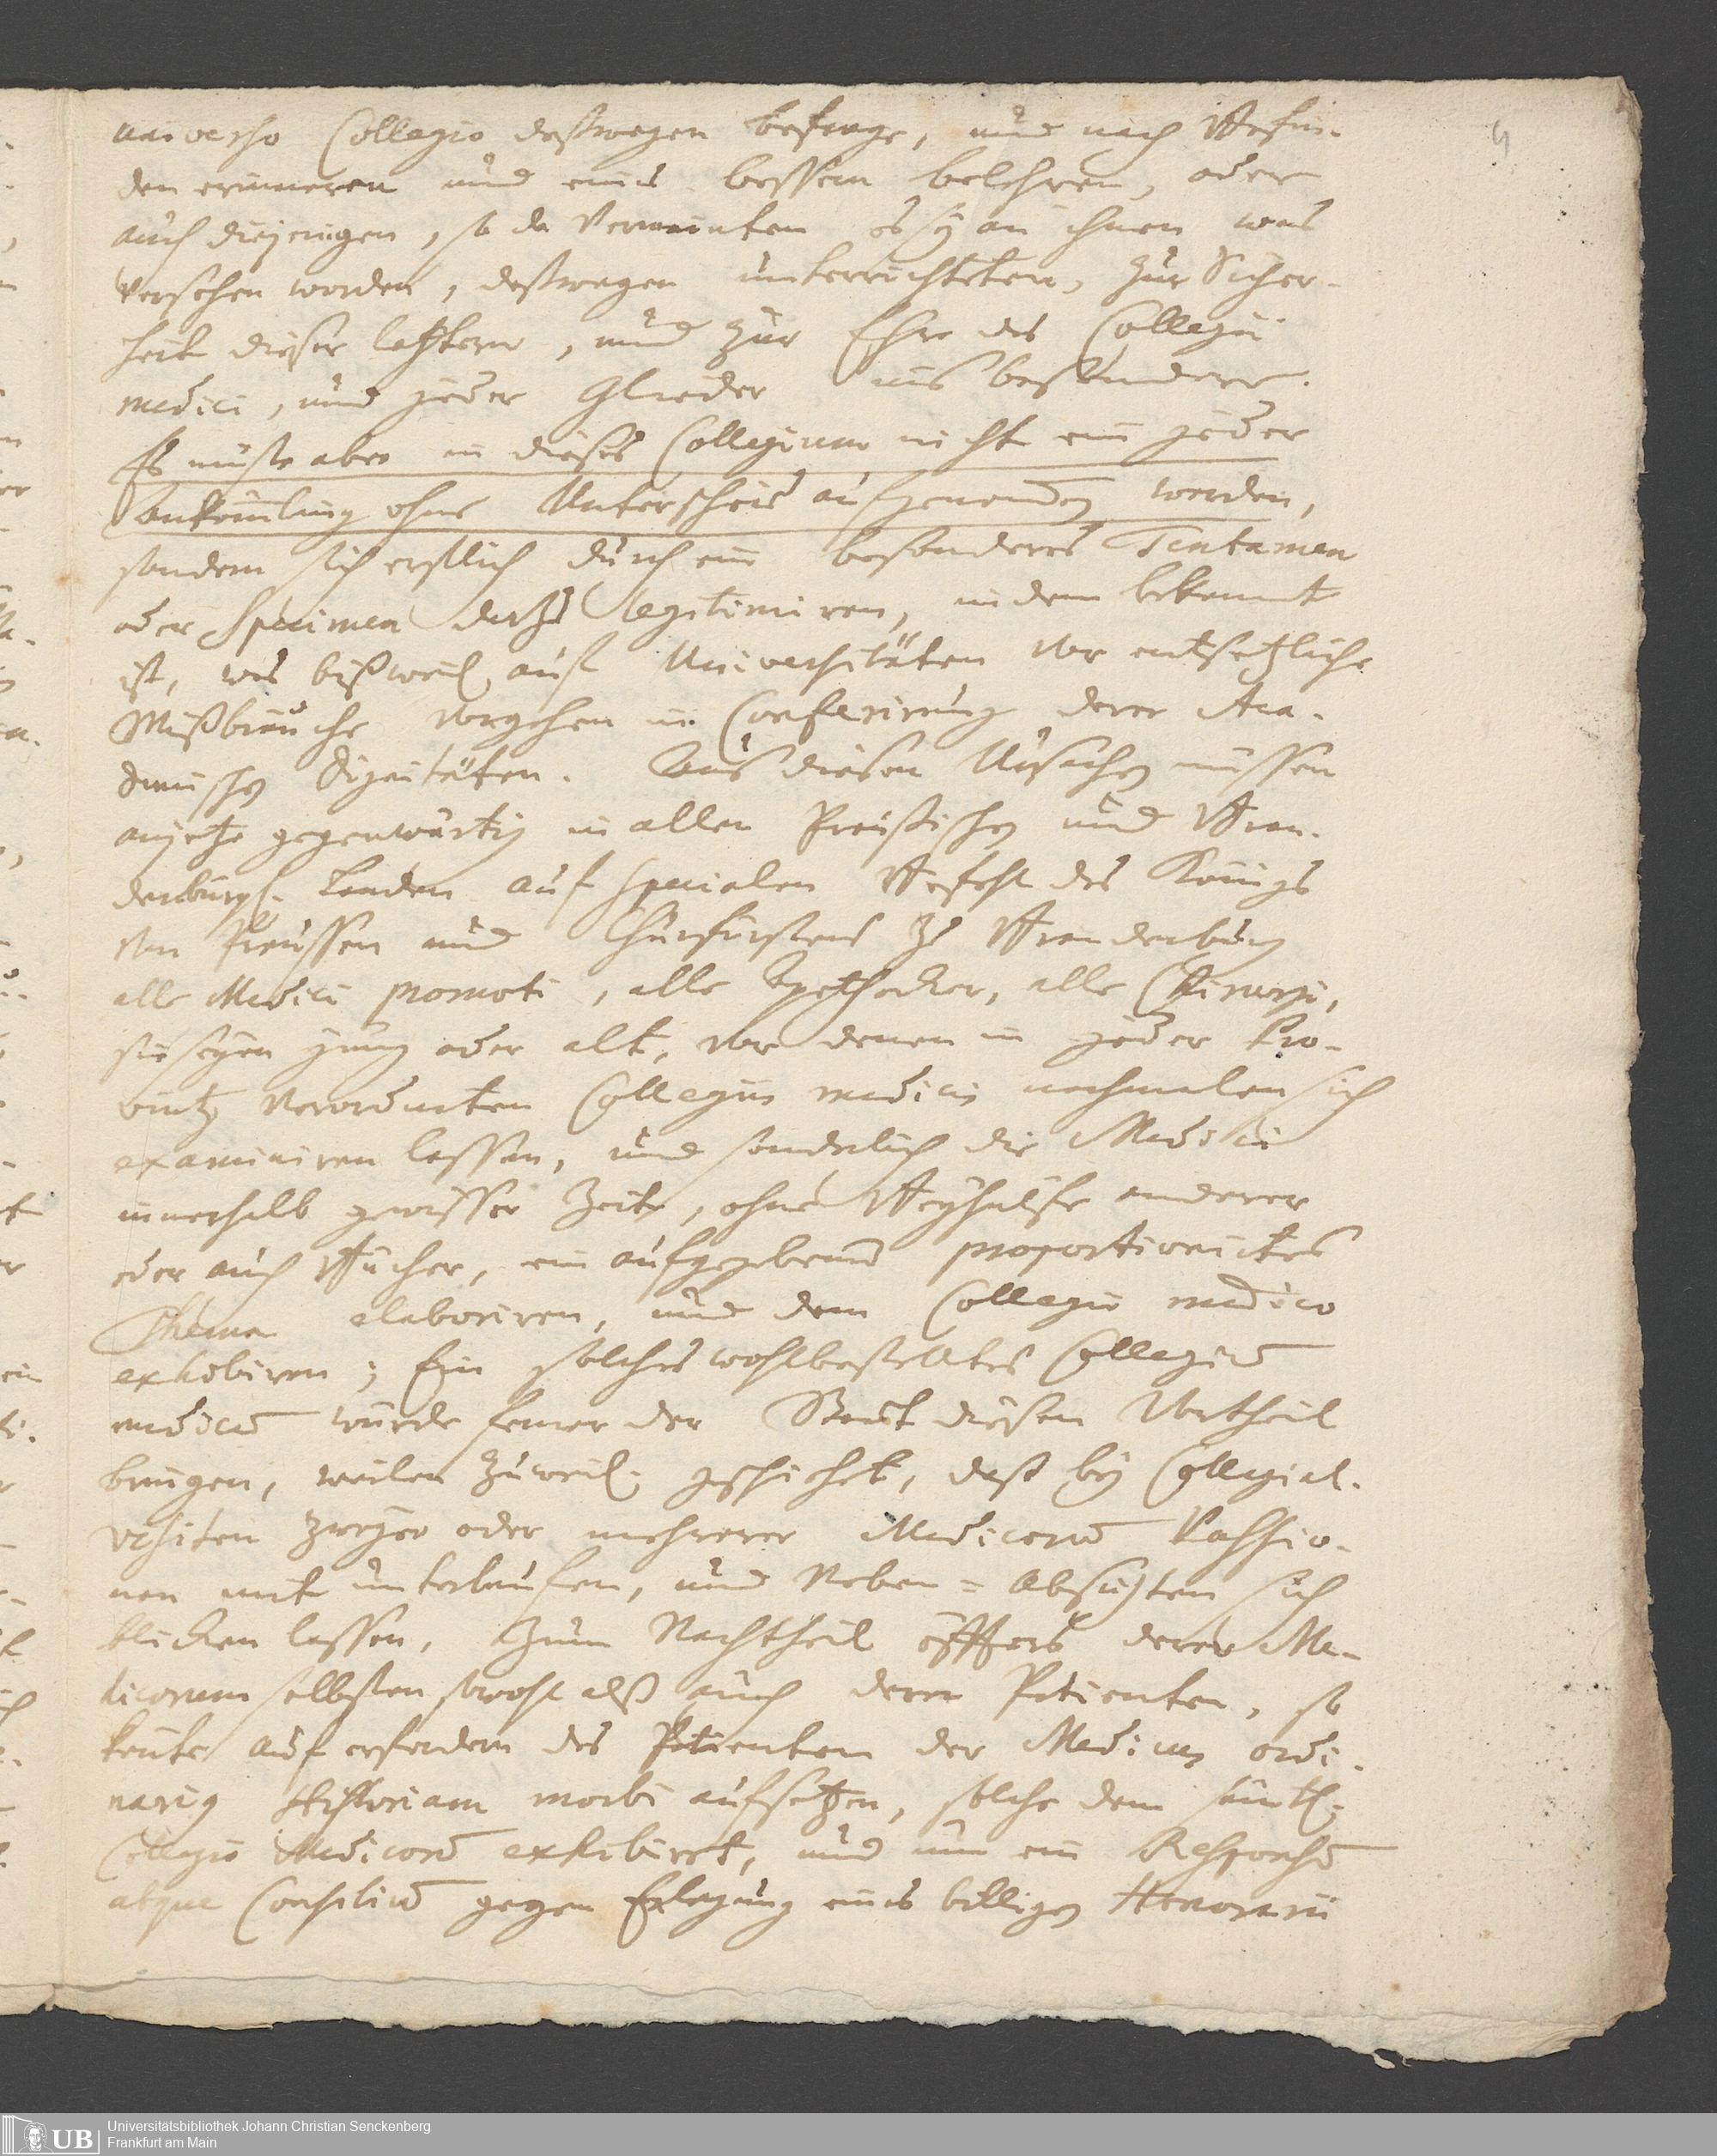 4
universo Collegio deßwegen befrage, und nach Befin-
den erinneren und eines bessern belehren, oder
auch diejenigen, so da Vermeinten es sey an ihnen was
versehen worden, deßwegen unterrichteten, zur Sicher-
heit dieser letztern, und zur Ehre des Collegii
medici, und jeder Glieder ins besondere.
Es müste aber in dieses Collegium nicht ein jeder
Ankömling ohne Unterscheid aufgenommen werden,
sondern sich erstlich durch ein besonderes Tentamen
oder Specimen darzu legitimiren, indem bekannt
ist, was bißweil. auf Universitäten vor entsetzliche
Mißbräuche vorgehen in Conferirung derer Aca-
demischen Dignitäten. Aus diesen Ursachen müssen
anjetzo gegenwärtig in allen Preußischen und Bran-
denburgl. Landen auf specialen Befehl des Königs
von Preussen und Churfürstens zu Brandenburg
alle Medici promoti, alle Apothecker, alle Chirurgi,
sie seyen jung oder alt, vor denen in jeder Pro-
vintz verordneten Collegiis medicis nochmalen sich
examiniren lassen, und sonderlich die Medici
innerhalb gewisser Zeit, ohne Beyhülfe anderer
oder auch Bücher, ein aufgegebenes proportionirtes
Thema elaboriren, und dem Collegio medico
exhibiren; Ein solches wohlbestelltes Collegium
medicum würde ferner der Stadt diesen Vortheil
bringen, weilen zuweil. geschiehet, daß bey Collegial-
visiten zweyer oder mehrerer Medicorum Passio-
nen mit unterlaufen, und Neben-Absichten sich
blicken lassen, zum Nachtheil öffters derer Me-
dicorum selbsten sowohl alß auch derer Patienten, so
könte auf erfordern des Patienten der Medicus ordi-
narius Historiam morbi aufsetzen, solche dem sämtl.
Collegio Medicorum exhibiret, und um ein Responsum
atque Consilium gegen Erlegung eines billigen Honorarii
UB Universitätsbibliothek Johann Christian Senckenberg
Frankfurt am Main